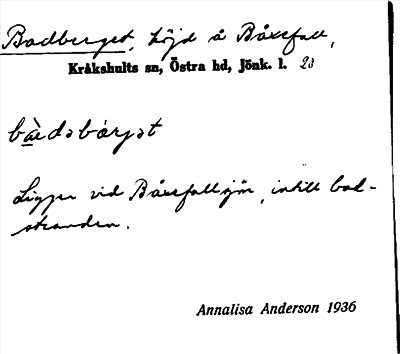 Badberget, höjd å Båxefall,
Kråkshults sn, Östra hd, Jönk. l. 23
Ligger vid Båxefallsjön, intill bad-
stranden.
Annalisa Anderson 1936